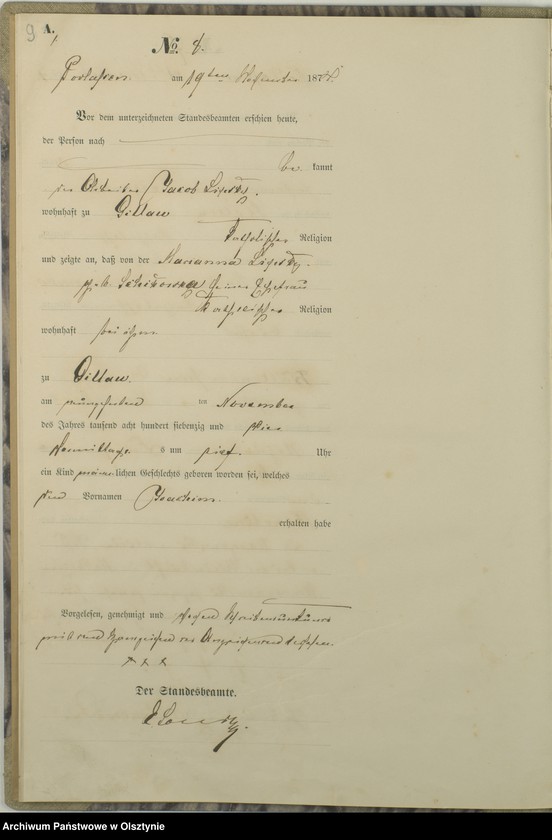 9
A.
No. 8.
am 19ten November 1874
Vor dem unterzeichneten Standesbeamten erschien heute,
der Person nach
be kannt
der Arbeiter Jacob
wohnhaft zu Gillau
katholischer Religion
und zeigte an, daß von der Marianna
geb. seiner Ehefrau
katholischer Religion
wohnhaft bei ihm
zu Gillau.
am im November
des Jahres tausend acht hundert siebenzig und vier
Vormittags um Uhr
ein Kind männlichen Geschlechts geboren worden sei, welches
den Vornamen Joachim
erhalten habe
Vorgelesen, genehmigt und wegen Schreibensunkunde
mit dem Handzeichen des Anzeigenden versehen.
x x x
Der Standesbeamte.
Archiwum Państwowe w Olsztynie